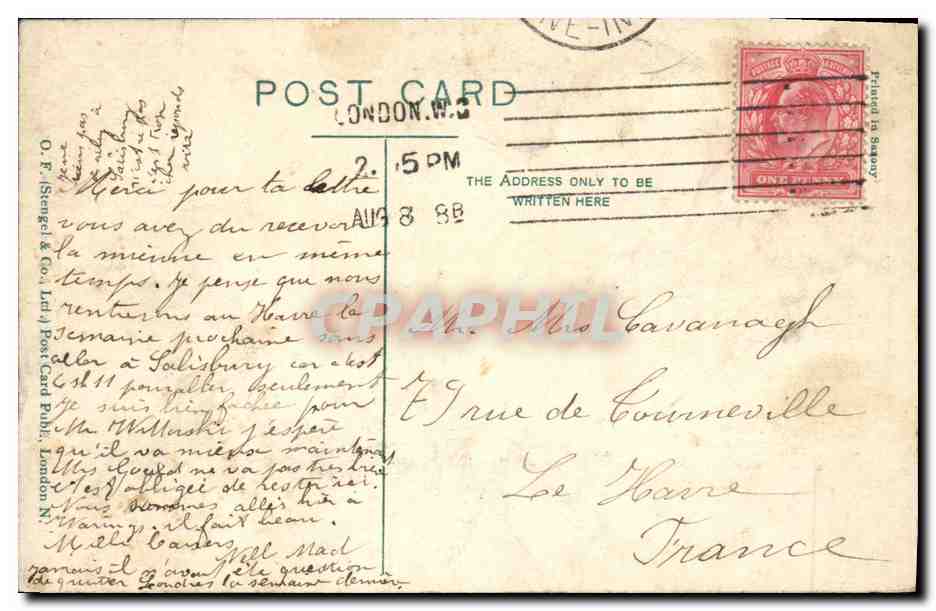 POST CARD
LONDON.W.C
2.15PM
AUG 8 8B
VE-IN
THE ADDRESS ONLY TO BE
WRITTEN HERE
POSTAGE
ONE PENNY
Printed in Saxony
O. F. Stengel & Co., Ltd., Post Card Publ. London N.
CPAPHIL
Salisbury
Merci pour ta lettre
vous avez du recevoir
la mienne en même
temps. Je pense que nous
rentrerons au Havre la
semaine prochaine sans
aller à Salisbury car c'est
pour aller, seulement
Je suis bien fachée pour
Mr j'espère
qu'il va mieux maintenant
Mrs Gould ne va pas très bien
c'est obligée de rester ici.
Nous sommes allés hier à
Warings. il fait beau.
Mille baisers
Nell Mad
jamais il n'avait été question
de quitter Londres la semaine dernière
Mr Mrs Cavanagh
79 rue de Tourneville
Le Havre
France